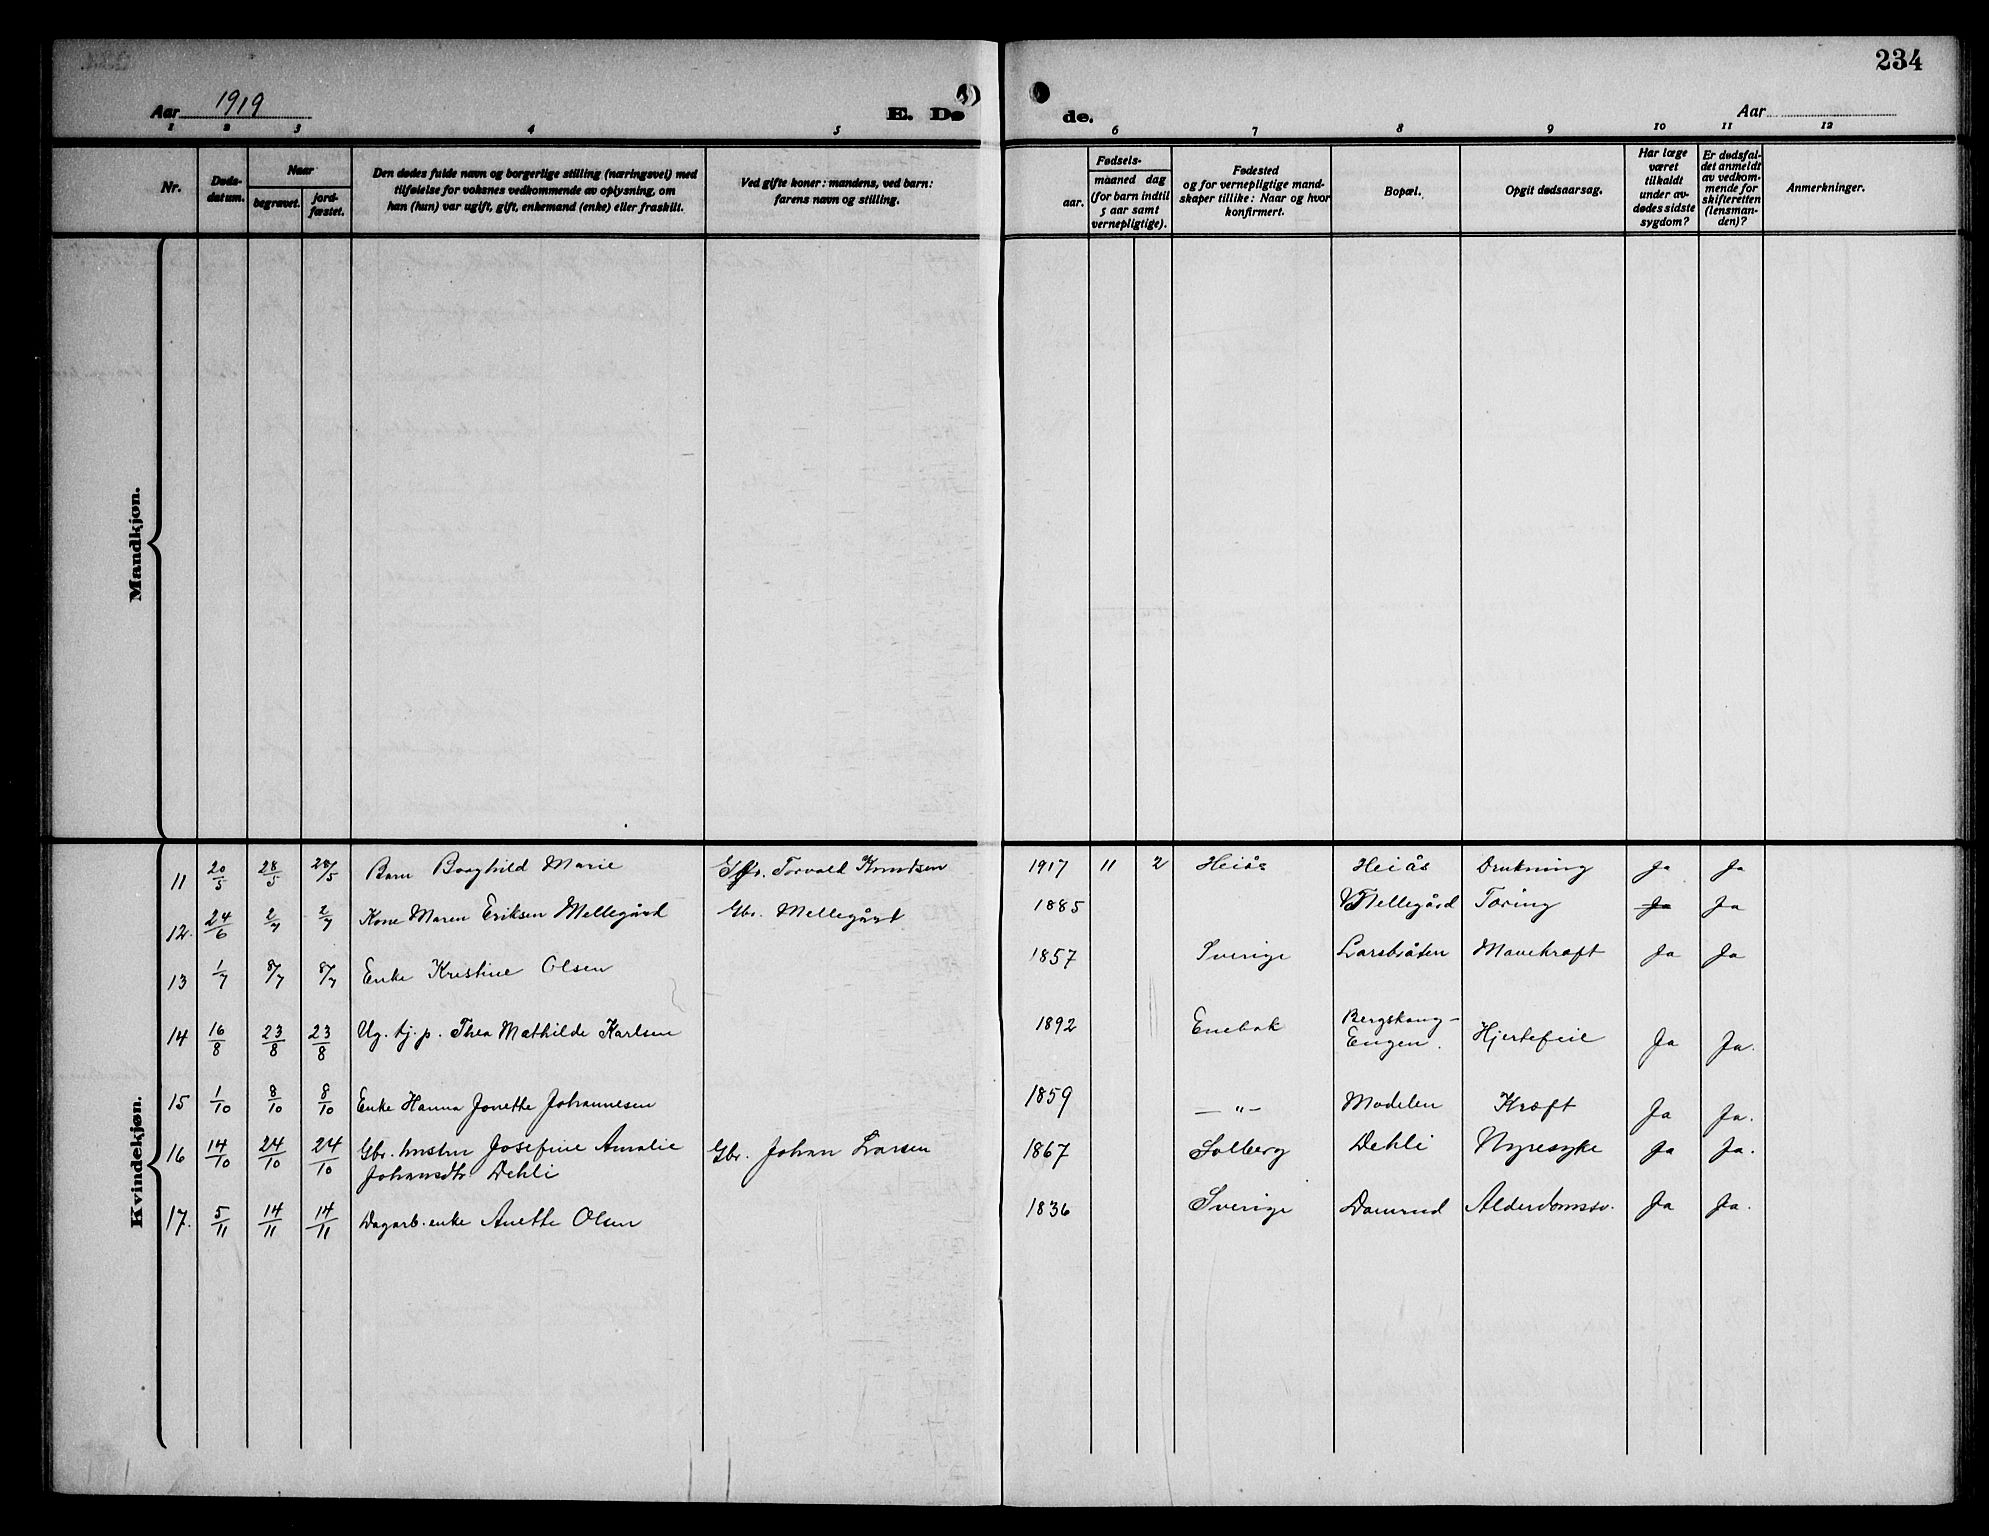 234
Aar 1919
E. Dø
de.
Aar
1 2 3 4 5 6 7 8 9 10 11 12
Nr.
Døds-
datum.
Naar
begravet.
jord-
fæstet.
Den dødes fulde navn og borgerlige stilling (næringsvei) med
tilføielse for voksnes vedkommende av oplysning, om
han (hun) var ugift, gift, enkemand (enke) eller fraskilt.
Ved gifte koner: mandens, ved barn:
farens navn og stilling.
Fødsels-
aar.
maaned dag
(for barn indtil
5 aar samt
vernepligtige).
Fødested
og for vernepligtige mand-
skaper tillike: Naar og hvor
konfirmert.
Bopæl.
Opgit dødsaarsag.
Har læge
været
tilkaldt
under av-
dødes sidste
sygdom?
Er dødsfal-
det anmeldt
av vedkom-
mende for
skifteretten
(lensman-
den)?
Anmerkninger.
Mandkjøn.
Kvindekjøn.
11 20/5 28/5 28/5 Barn Borghild Marie Torvald Knudsen 1917 11 2 Heiås Heiås Drukning Ja Ja
12. 24/6 2/7 2/7 Kone Maren Eriksen Mellegård Gbr. Mellegård 1885 Mellegård Tæring Ja Ja
13 1/7 8/7 8/7 Enke Kristine Olsen 1857 Sverige Larsbråten Mavekræft Ja Ja
14 16/8 23/8 23/8 Ug. tj. p. Thea Mathilde Karlsen 1892 Enebak Bergskaug-
Engen. Hjertefeil Ja Ja.
15 1/10 8/10 8/10 Enke Hanna Jonette Johannesen 1859 — " — Modelen Kræft Ja Ja.
16 14/10 24/10 24/10 Gbr. hustru Josefine Amalie Gbr. Johan Larsen 1867 Solberg Dehli Nyresyke Ja Ja.
Johansdtr Dehli
17. 5/11 14/11 14/11 Dagarb. enke Anette Olsen 1836 Sverige Damrud Alderdomssv. Ja Ja.